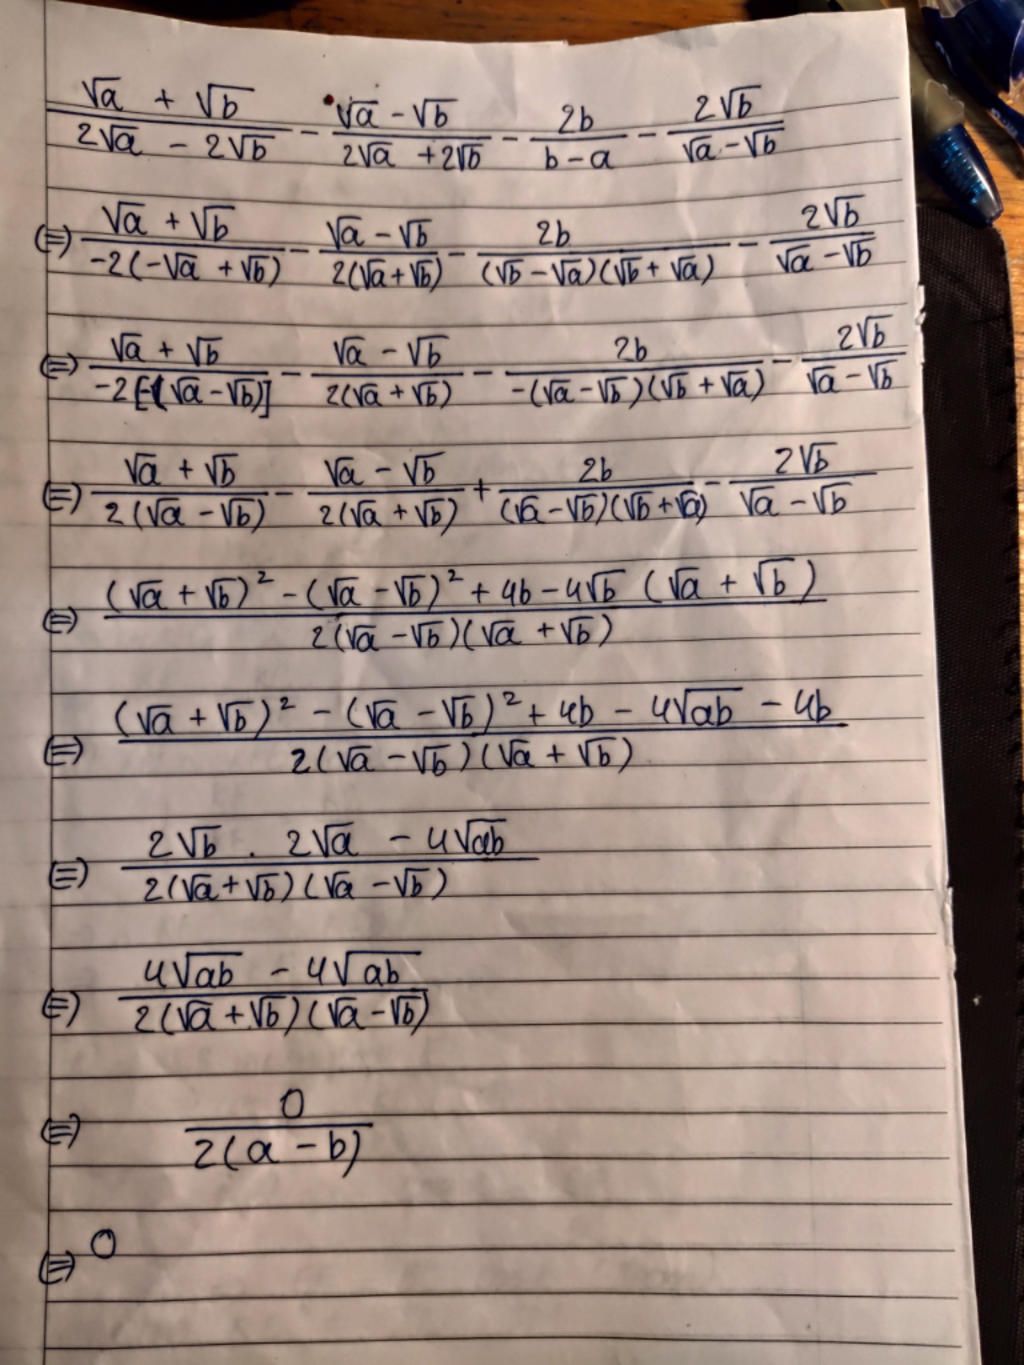 (√a + √b)/(2√a - 2√b) - (√a - √b)/(2√a + 2√b) - 2b/(b - a) - 2√b/(√a - √b)
(=) (√a + √b)/(-2(-√a + √b)) - (√a - √b)/(2(√a + √b)) - 2b/((√b - √a)(√b + √a)) - 2√b/(√a - √b)
(=) (√a + √b)/(-2[-(√a - √b)]) - (√a - √b)/(2(√a + √b)) - 2b/(-(√a - √b)(√b + √a)) - 2√b/(√a - √b)
(=) (√a + √b)/(2(√a - √b)) - (√a - √b)/(2(√a + √b)) + 2b/((√a - √b)(√b + √a)) - 2√b/(√a - √b)
(=) ((√a + √b)² - (√a - √b)² + 4b - 4√b (√a + √b))/(2(√a - √b)(√a + √b))
(=) ((√a + √b)² - (√a - √b)² + 4b - 4√ab - 4b)/(2(√a - √b)(√a + √b))
(=) (2√b . 2√a - 4√ab)/(2(√a + √b)(√a - √b))
(=) (4√ab - 4√ab)/(2(√a + √b)(√a - √b))
(=) 0/(2(a - b))
(=) 0